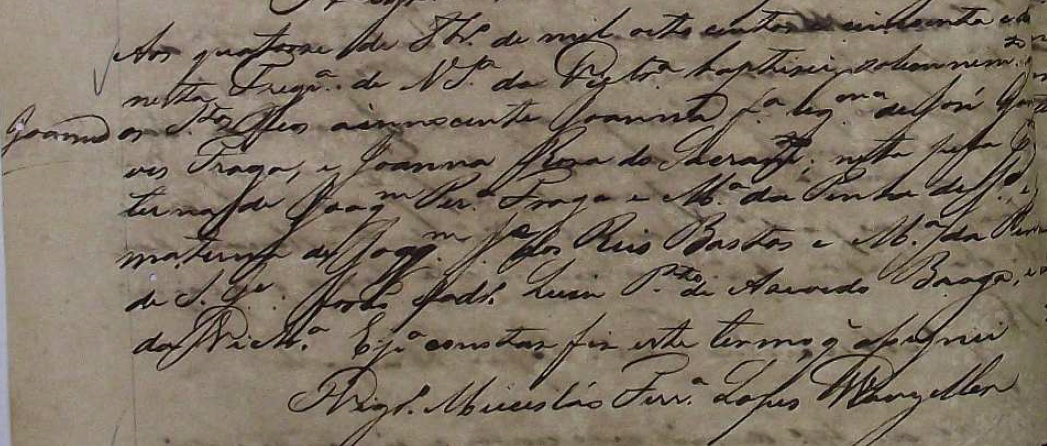 Aos quatorse de 8br.º de mil oito centos e cincoenta e
nesta Freg.ª de N. S.ª da Victr.ª baptisei, solemnem.te
Joanna os S.tos Oleos a innocente Joanna f.ª leg.ma de José
ves Fraga, e Joanna Rosa do Sacram.to; neta pela
terna de Joaq.m Per.ª Fraga e M.ª da Penha de J.s
materna de Joaq.m J.e dos Reis Bastos e M.ª da Penna
de S. J.e. forão Padr. Luis P.to de Azevedo Braga,
da Vict.ª E p.ª constar fiz este termo, q̃ assignei
Vigr.º Miceslás Ferr.ª Lopes Wanzeller